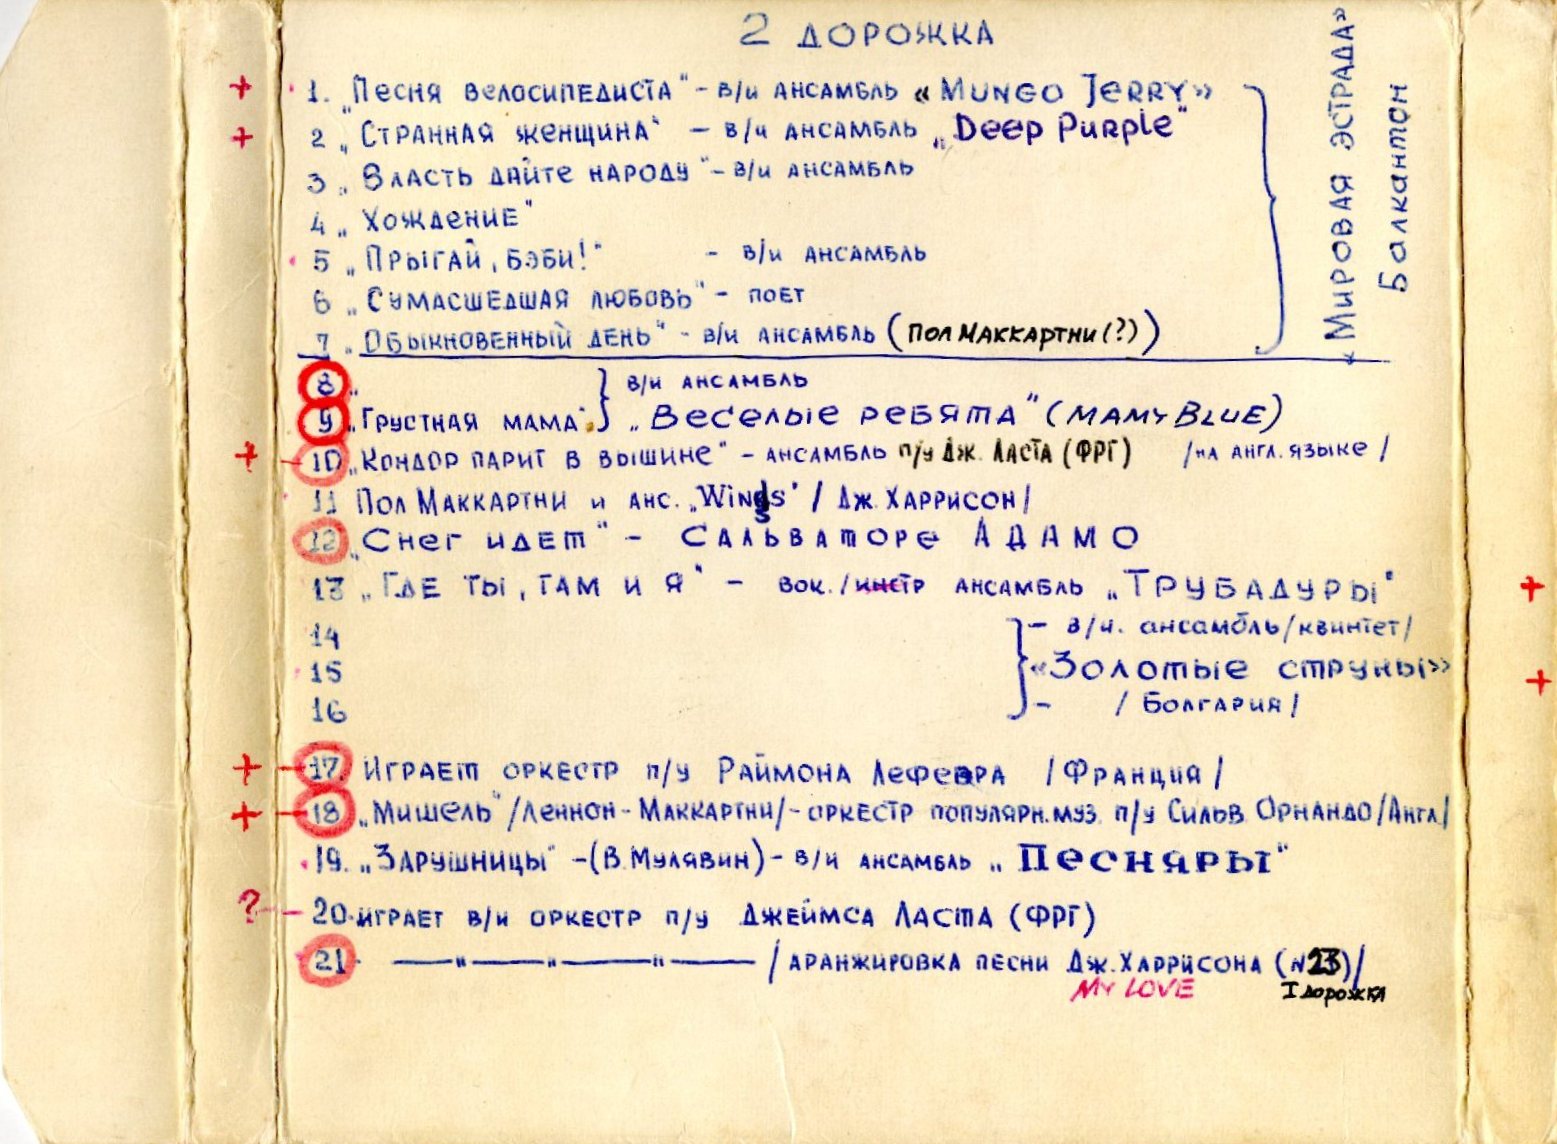 2 ДОРОЖКА
+ 1. „Песня велосипедиста" - в/и ансамбль «Mungo Jerry»
+ 2 „Странная женщина" - в/и ансамбль „Deep Purple"
3 „Власть дайте народу" - в/и ансамбль
4 „Хождение"
5 „Прыгай, бэби!" - в/и ансамбль
6 „Сумасшедшая любовь" - поет
7 „Обыкновенный день" - в/и ансамбль (Пол Маккартни(?))
«Мировая эстрада»
Балкантон
8 „ в/и ансамбль
9 „Грустная мама" „Веселые ребята" (MAMY BLUE)
+ 10 „Кондор парит в вышине" - ансамбль п/у Дж. Ласта (ФРГ) /на англ. языке/
11 Пол Маккартни и анс. „Wings" / Дж. Харрисон/
12 „Снег идет" - Сальваторе АДАМО
13 „Где ты, там и я" - вок./инстр ансамбль „Трубадуры" +
14 - в/и. ансамбль/квинтет/
15 «Золотые струны» +
16 - /Болгария/
+ 17. Играет оркестр п/у Раймона Лефевра /Франция/
+ 18 „Мишель" /Леннон-Маккартни/- оркестр популярн. муз. п/у Сильв. Орнандо/Англ/
19. „Зарушницы" -(В.Мулявин)- в/и ансамбль „Песняры"
? 20. играет в/и оркестр п/у Джеймса Ласта (ФРГ)
21 — " — " — " — /аранжировка песни Дж. Харрисона (N23)/
MY LOVE I дорожка